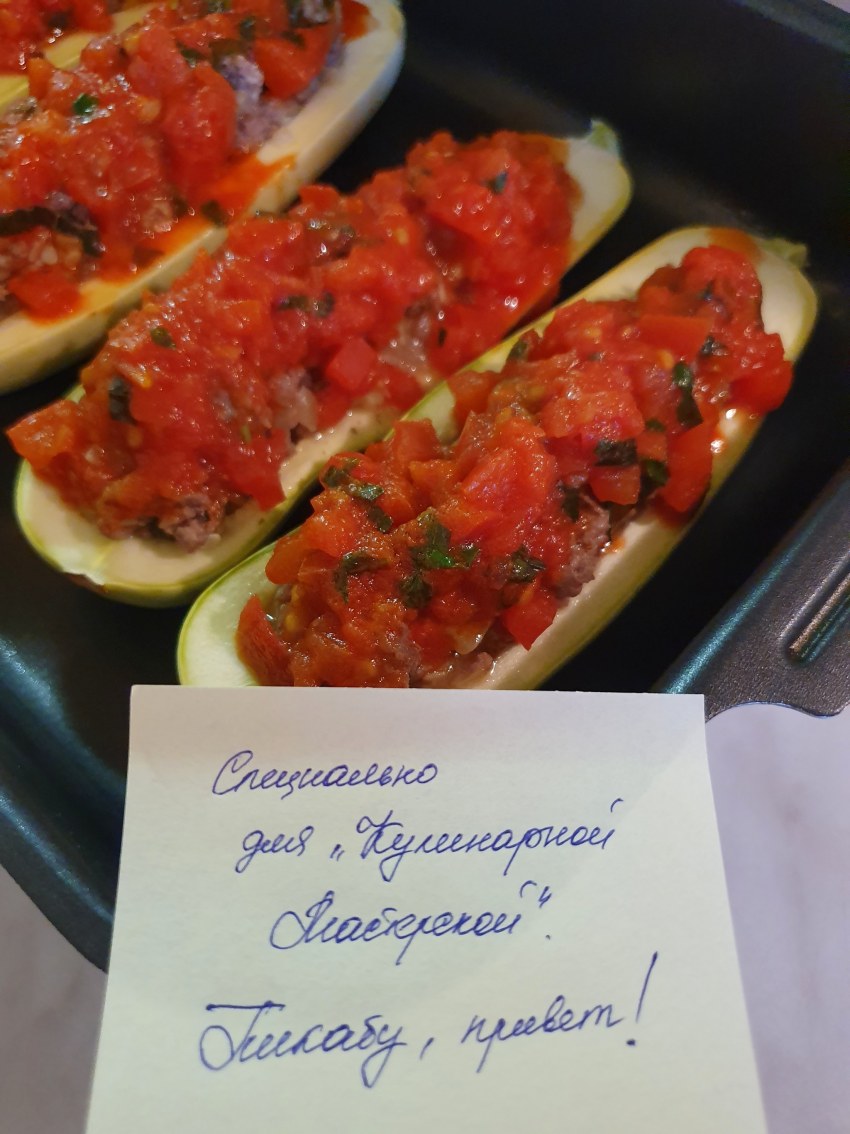 Специально
для „Кулинарной
Мастерской".
Пикабу, привет!